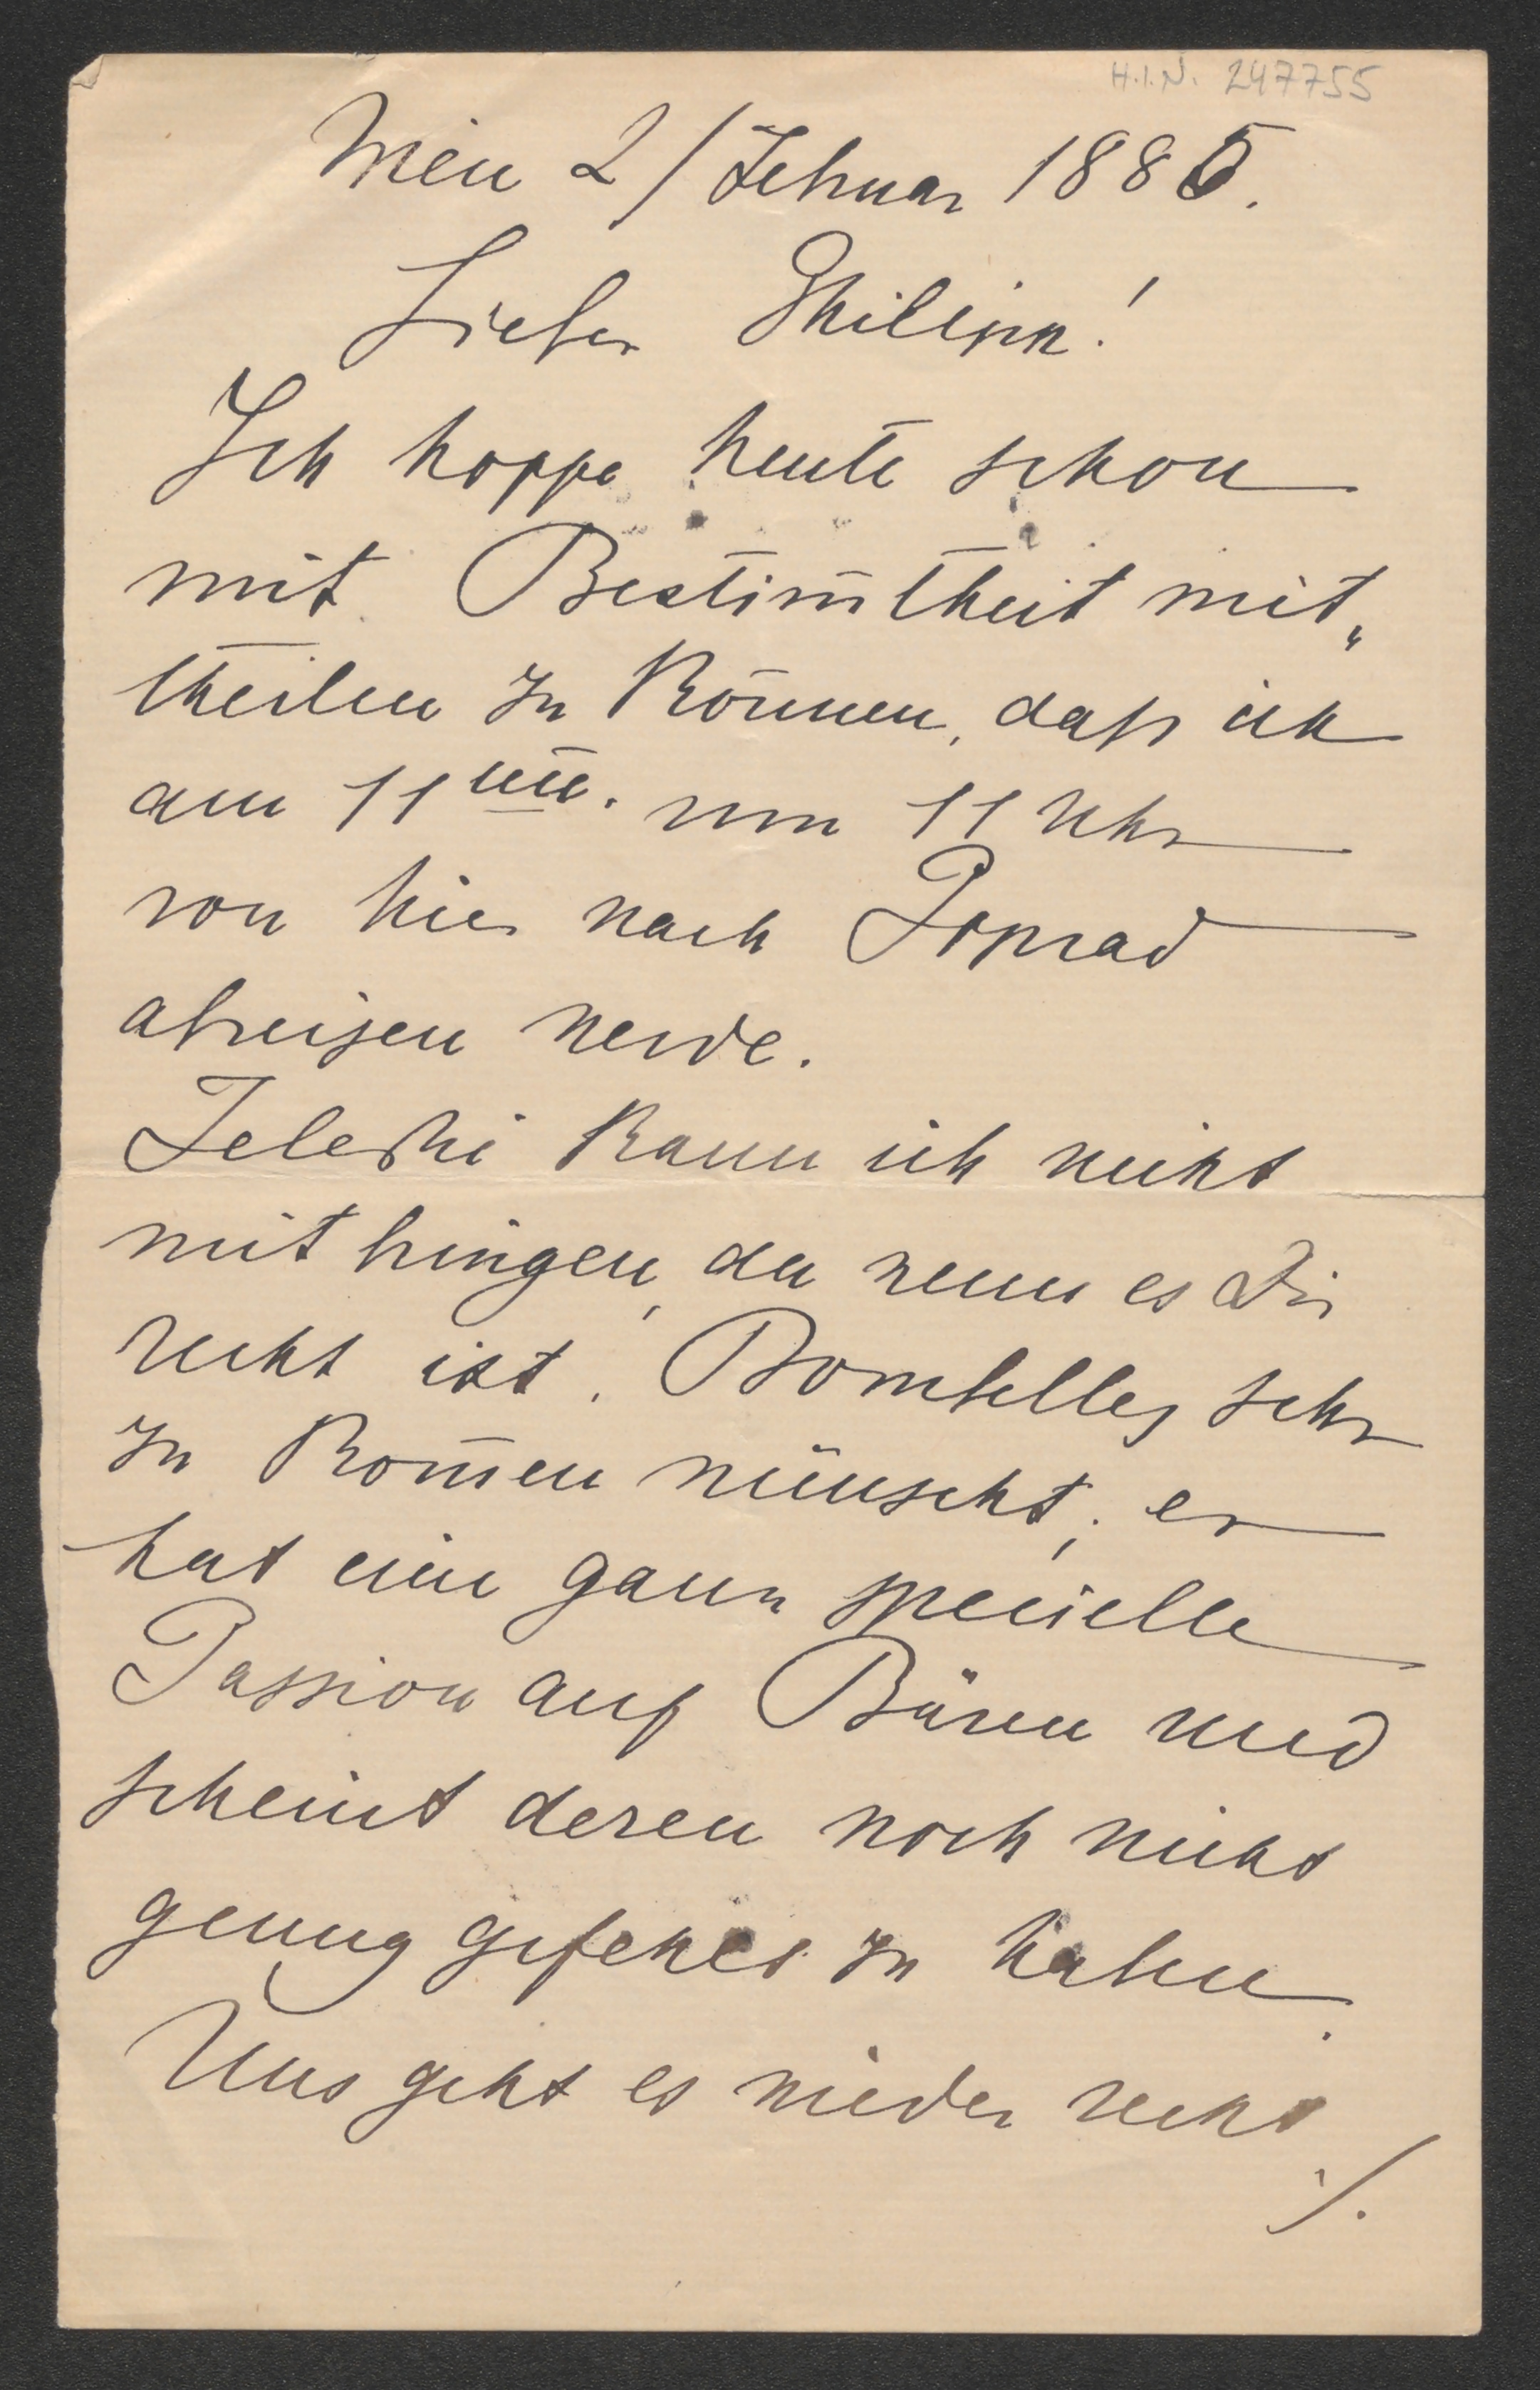 H.I.N. 247755
Wien 2/Februar 1885.
Lieber Philipp!
Ich hoffe heute schon
mit Bestim̄theit mit„
theilen zu können, daß ich
am 11ten. um 11 Uhr
von hier nach Poprad
abreisen werde.
Teleski kann ich nicht
mit bringen, da wenn es Dir
recht ist, Bombelles sehr
zu kom̄en wünscht; er
hat eine ganz specielle
Passion auf Bären und
scheint deren noch nicht
genug gesehen zu haben.
Uns geht es wieder recht
./.